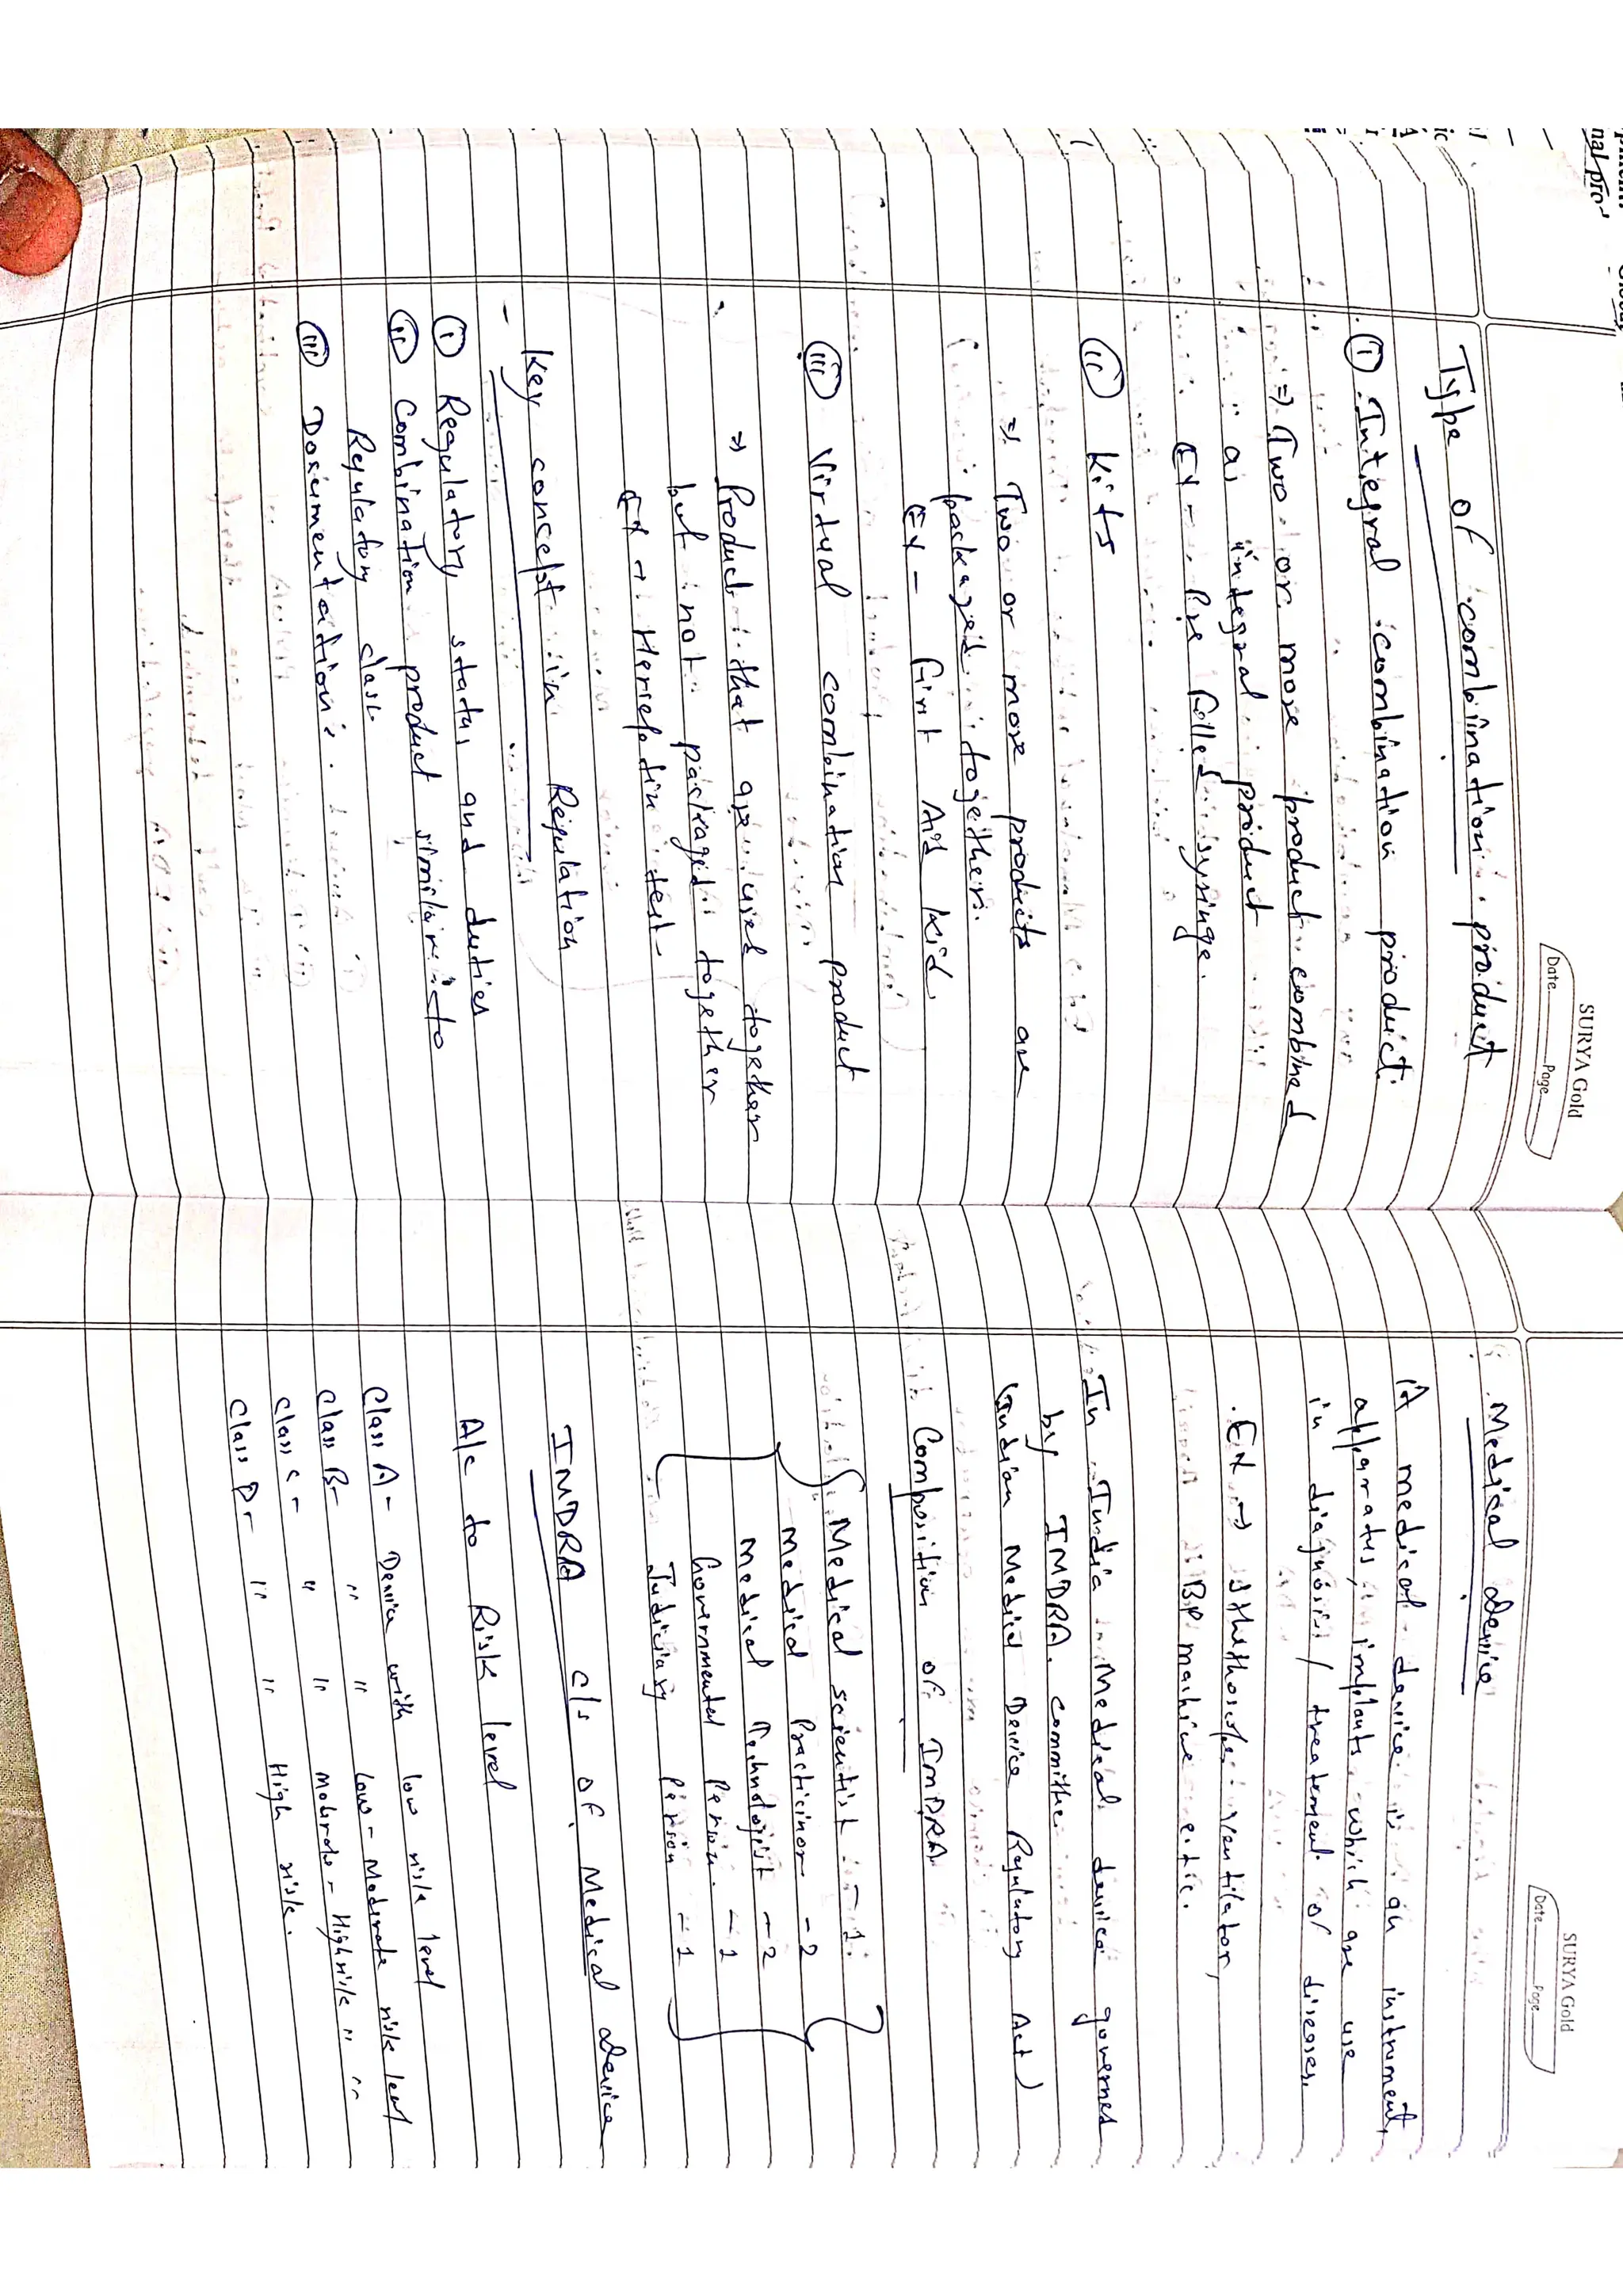 SURYA Gold
Date
Page
Type of combination product
(i) Integral combination product
⇒ Two or more product combined
as integral product
Ex - Pre filled syringe.
(ii) kits
⇒ Two or more products are
packaged together.
Ex - First Aid kid.
(iii) Virtual combination product
⇒ Product that are used together
but not packaged together
Ex → Hercfotin test
- Key concept in Regulation
(i) Regulatory status and duties
(ii) Combination product similar to
Regulatory class
(iii) Documentation.
SURYA Gold
Date
Page
Medical device
A medical device is an instrument,
apparatus, implants which are use
in diagnosis / treatement of diseases.
Ex → sthethoscope ventilator,
BP machine etc.
In India Medical device governed
by IMDRA. committe
(Indian Medical Device Regulatory Act)
Composition of IMDRA
Medical scientist - 1.
Medical Practicinor - 2
Medical Technologist - 2
Governmental Person - 1
Judiciary Person - 1
IMDRA c/s of Medical device
A/c to Risk level
Class A - Device with low risk level
Class B - " " low - Moderate risk level
Class C - " " moderate - High risk " "
Class D - " " High risk.